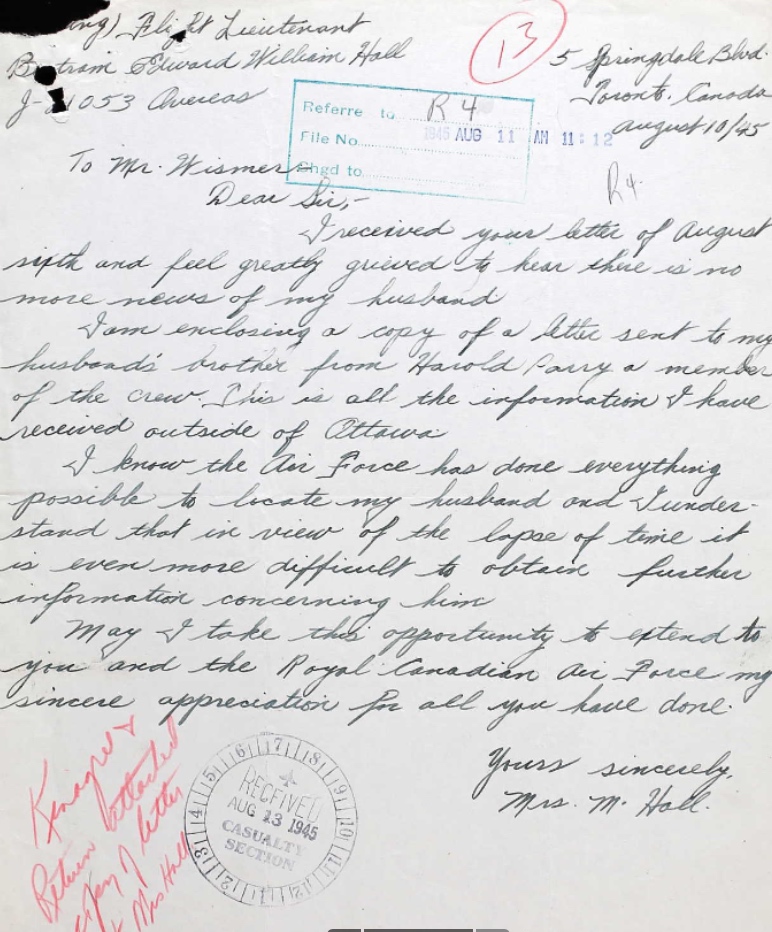 ing) Flight Lieutenant
Bertram Edward William Hall
J-21053 Overseas
13
5 Springdale Blvd.
Toronto. Canada
August 10/45
Referre to R 4
File No. 1945 AUG 11 AM 11:12
Chgd to
R4.
To Mr. Wismer
Dear Sir,-
I received your letter of August
sixth and feel greatly grieved to hear there is no
more news of my husband.
I am enclosing a copy of a letter sent to my
husband's brother from Harold Parry a member
of the crew. This is all the information I have
received outside of Ottawa.
I know the Air Force has done everything
possible to locate my husband and I under-
stand that in view of the lapse of time it
is even more difficult to obtain further
information concerning him
May I take this opportunity to extend to
you and the Royal Canadian Air Force my
sincere appreciation for all you have done.
Yours sincerely,
Mrs. M. Hall.
&
Return attached
copy of letter
to Mrs Hall
RECEIVED
AUG 13 1945
CASUALTY
SECTION